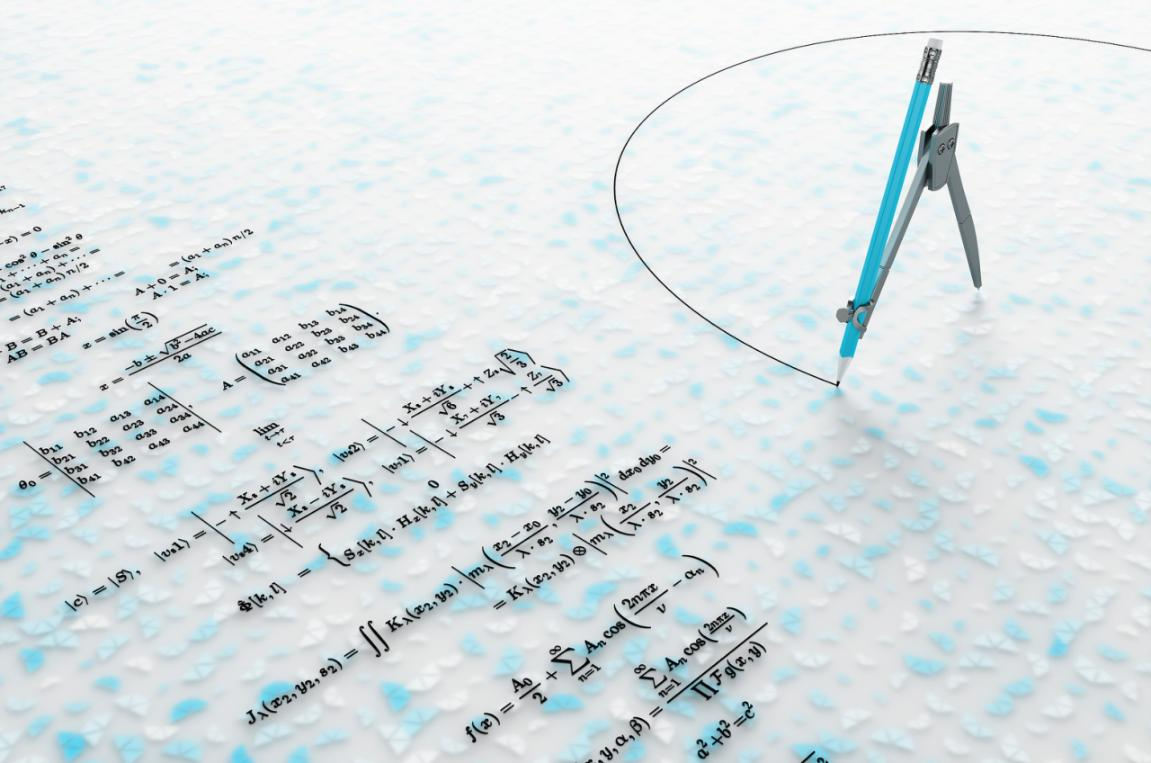 -x) = 0
cos² θ − sin² θ
(a₁ + aₙ) + ⋯ =
= (a₁ + aₙ) n/2
= (a₁ + aₙ) + ⋯
= (a₁ + aₙ) n/2
A + 0 = A;
A · 1 = A;
B = B + A;
AB = BA
z = sin(π/2)
x = (−b ± √(b² − 4ac))/2a
A = ( a₁₁ a₁₂ b₁₃ b₁₄
a₂₁ a₂₂ b₂₃ b₂₄
a₃₁ a₃₂ b₃₃ b₃₄
a₄₁ a₄₂ b₄₃ b₄₄ ).
θ₀ = | b₁₁ b₁₂ a₁₃ a₁₄
b₂₁ b₂₂ a₂₃ a₂₄
b₃₁ b₃₂ a₃₃ a₃₄
b₄₁ b₄₂ a₄₃ a₄₄ |,
lim
t→r
t<r
|c⟩ = |S⟩,
0
Φ̂[k, l] = { Sₓ[k, l] · Hₓ[k, l] + Sᵧ[k, l] · Hᵧ[k, l]
J_λ(x₂, y₂, s₂) = ∬ K_λ(x₂, y₂) · |m_λ((x₂ − x₀)/(λ · s₂), (y₂ − y₀)/(λ · s₂))|² dx₀ dy₀ =
= K_λ(x₂, y₂) ⊗ |m_λ(x₂/(λ · s₂), y₂/(λ · s₂))|²
f(x) = A₀/2 + ∑ₙ₌₁^∞ Aₙ cos(2nπx/ν − αₙ)
y, α, β) = ∑ₙ₌₁^∞ Aₙ cos(2nπx/ν) / ∏ ℱg(x, y)
a² + b² = c²